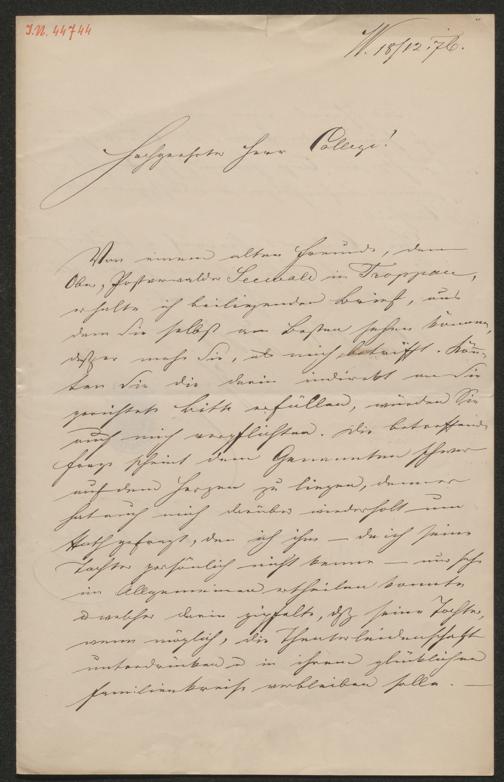 I.N. 44744
W. 18/12. 76.
Hochgeehrter Herr College!
Von einem alten Freunde, dem
Ober-Postverwalter Seewald in Troppau,
erhalte ich beiliegenden Brief, aus
dem Sie selbst am Besten sehen können,
daß er mehr Sie, als mich betrifft. Könn-
ten Sie die darin indirekt an Sie
gerichtete Bitte erfüllen, würden Sie
auch mich verpflichten. Die betreffende
Frage scheint dem Genannten schwer
auf dem Herzen zu liegen, denn er
hat auch mich darüber wiederholt um
Rath gefragt, den ich ihm — da ich seine
Tochter persönlich nicht kenne — nur sehr
im Allgemeinen ertheilen konnte
u welcher darin gipfelte, dß seine Tochter,
wenn möglich, die Theaterleidenschaft
unterdrücken u in ihrem glücklichen
Familienkreise verbleiben solle. —